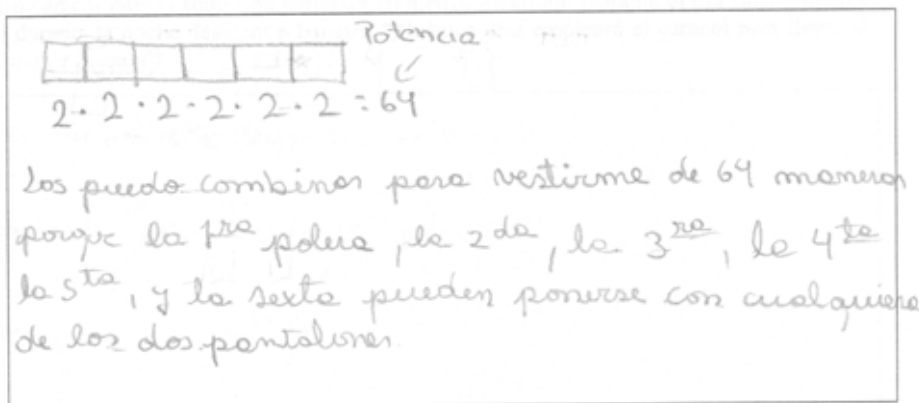 Potencia
2 · 2 · 2 · 2 · 2 · 2 = 64
Los puedo combinar para vestirme de 64 maneras
porque la 1ra polera, la 2da, la 3ra, la 4ta
la 5ta, y la sexta pueden ponerse con cualquiera
de los dos pantalones.